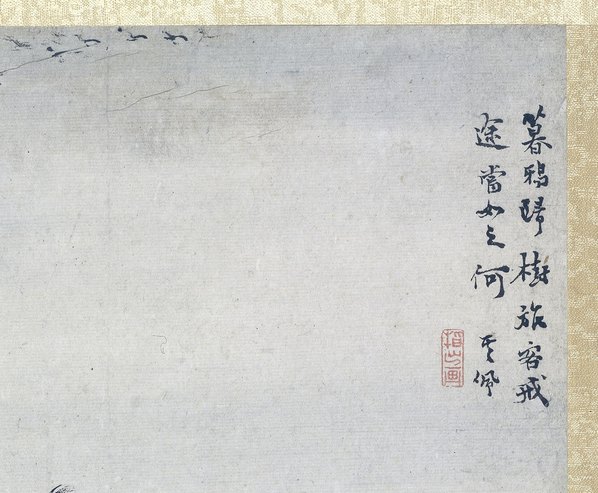 暮鴉歸樹旅客戒
途當如之何 其佩